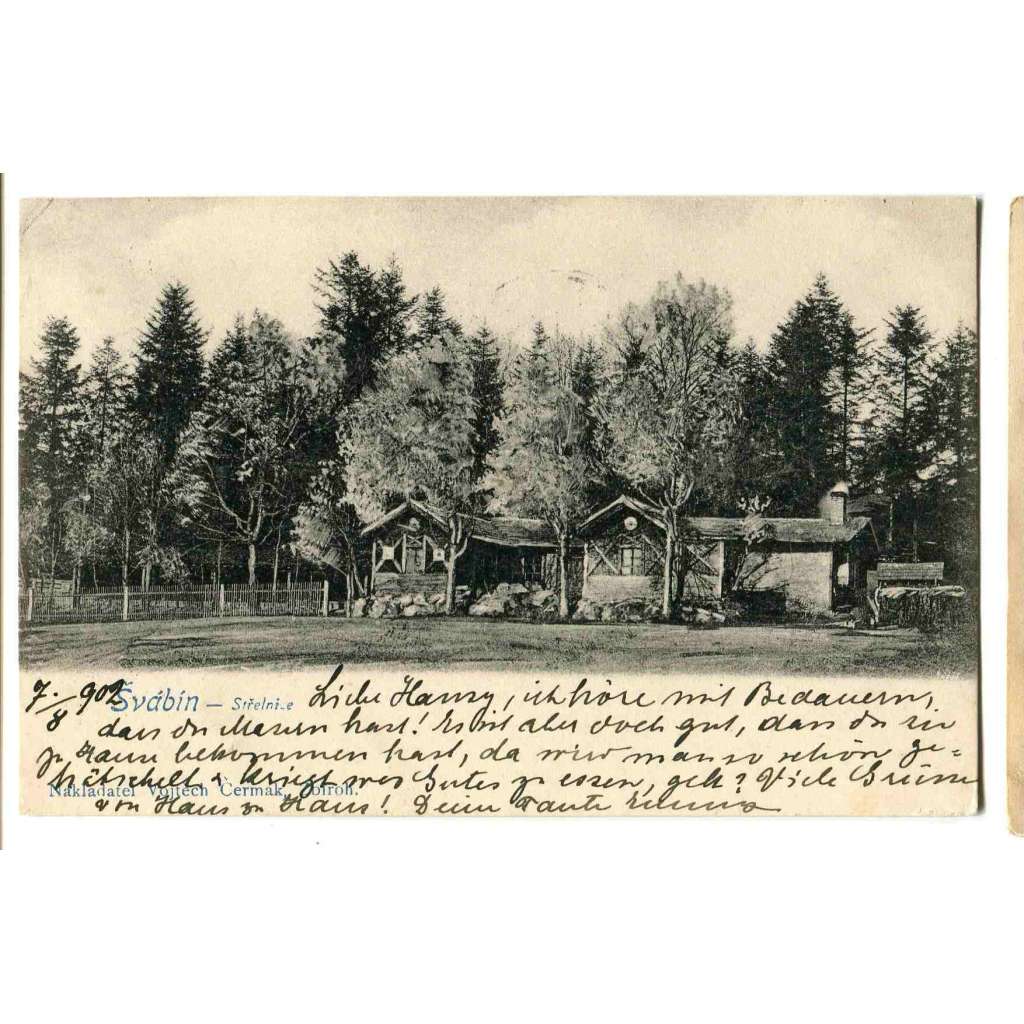 7./8 902
Švábín — Střelnice
Liebe Hansy, ich höre mit Bedauern,
dass du Masern hast! Es ist aber doch gut, dass du sie
zu Hause bekommen hast, da wird man so schön ge-
hätschelt & kriegt was Gutes zu essen, gelt? Viele Grüsse
Nákladatel Vojtěch Čermák, Zbiroh.
von Haus zu Haus! Deine Tante Emma